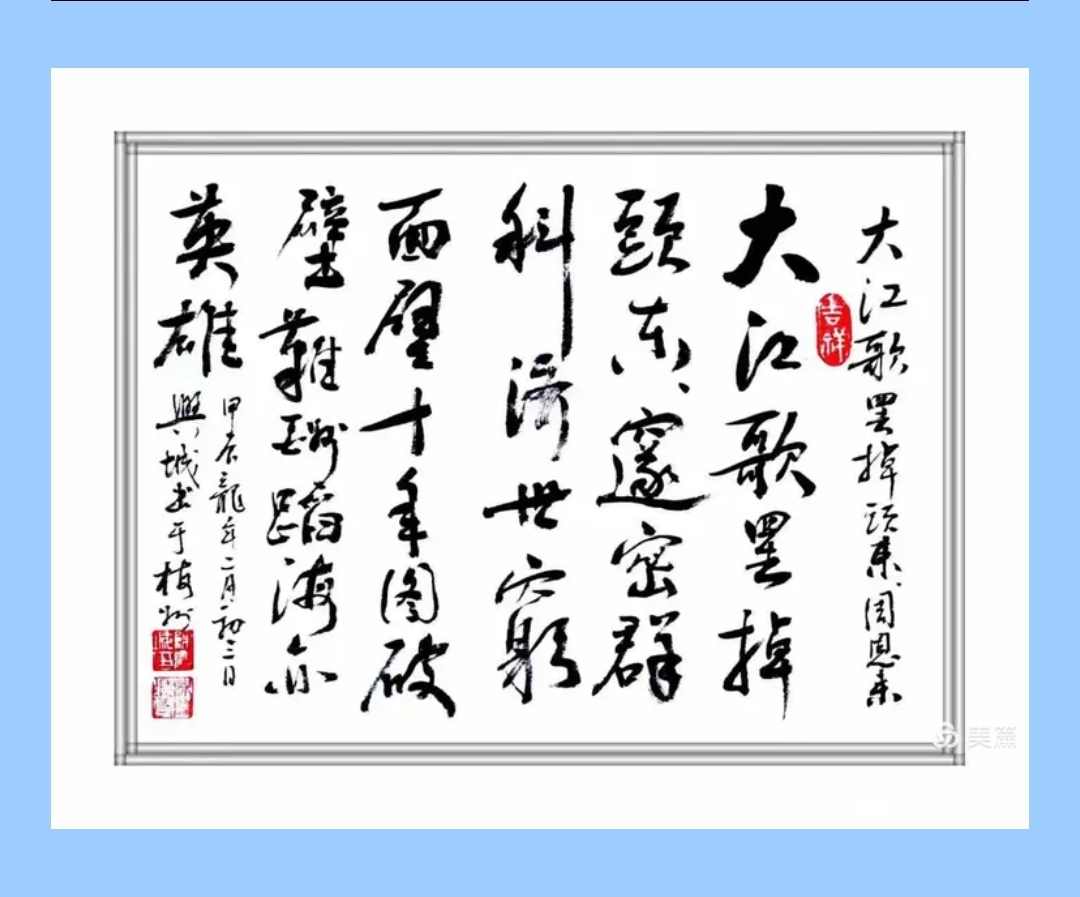 大江歌罢掉頭東周恩来
吉祥
大江歌罢掉
頭東邃密群
科济世穷
面壁十年图破
壁難酬蹈海亦
英雄
甲辰龍年二月初三日
興城书于梅州
美篇